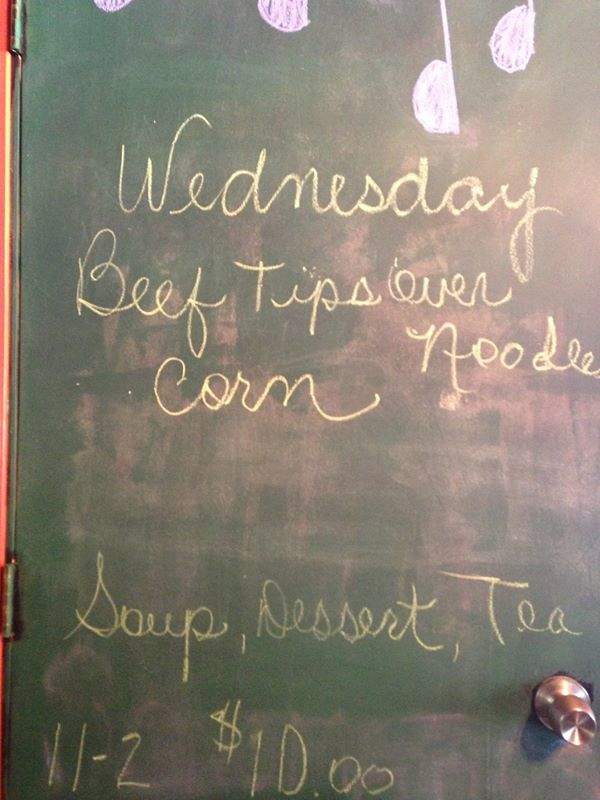 Wednesday
Beef Tips over
Noodle
Corn
Soup, Dessert, Tea
11-2 $10.00